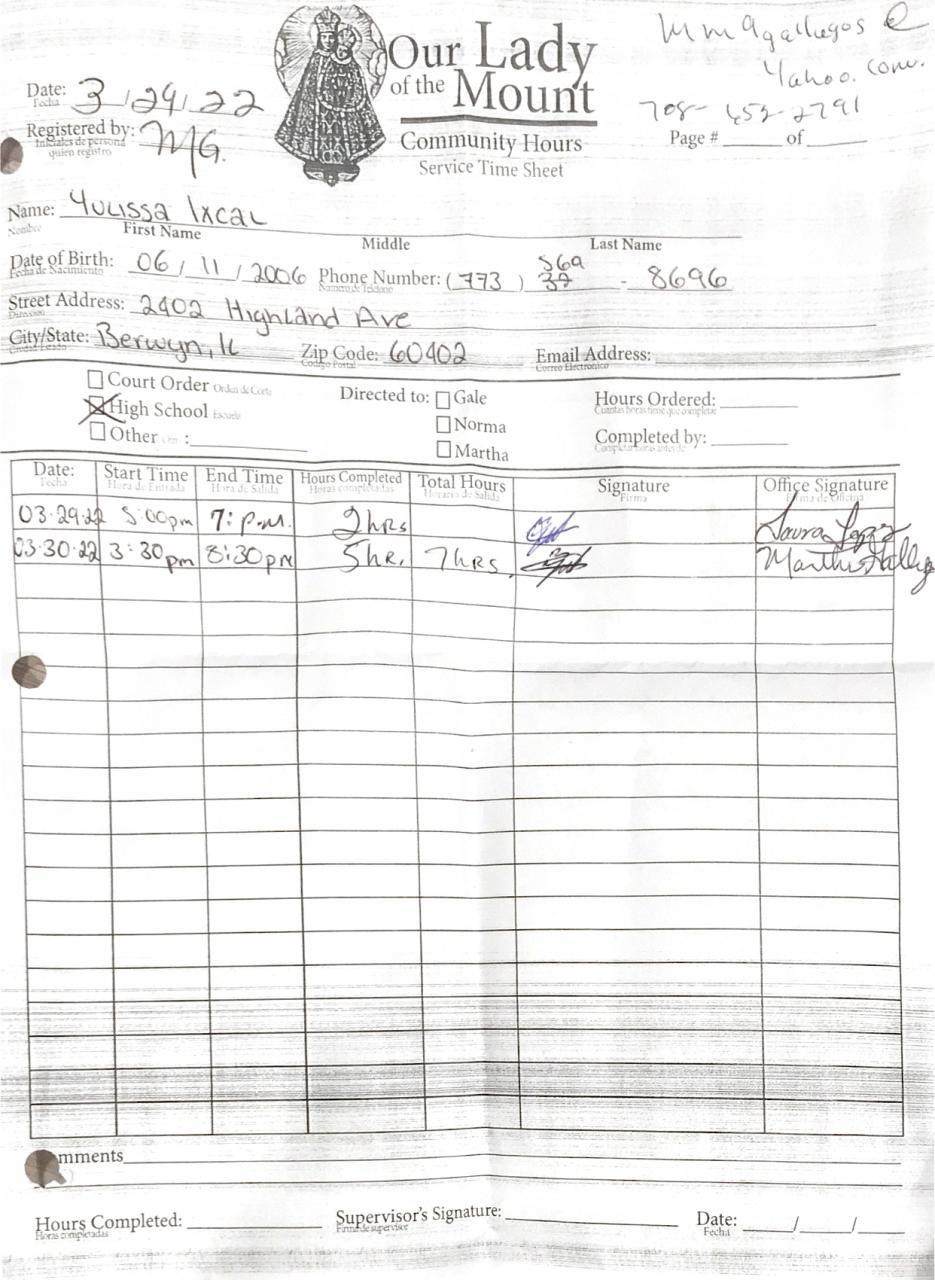 mmagallegos @
Yahoo.com.
708-452-2791
Our Lady
of the Mount
Community Hours
Service Time Sheet
Date: 3/29/22
Fecha
Registered by: MG.
Iniciales de persona
quien registro
Page # ______ of ______
Name: Yulissa Ixcal
Nombre
First Name Middle Last Name
Date of Birth: 06/11/2006 Phone Number: (773) 569 - 8696
Fecha de Nacimiento Numero de Telefono 37
Street Address: 2402 Highland Ave
Direccion
City/State: Berwyn, IL Zip Code: 60402 Email Address:
Ciudad/Estado Codigo Postal Correo Electronico
Court Order Orden de Corte
High School Escuela
Other Otro :
Directed to: Gale
Norma
Martha
Hours Ordered:
Cuantas horas tiene que completar
Completed by:
Completar horas antes de
Date: Start Time End Time Hours Completed Total Hours Signature Office Signature
Fecha Hora de Entrada Hora de Salida Horas completadas Horario de Salida Firma Firma de oficina
03-29-22 5:00pm 7: p.m. 2hrs Laura Lopez
03-30-22 3:30pm 8:30pm 5hr. 7hrs
mments
Hours Completed: Supervisor's Signature: Date: / /
Horas completadas Firma de supervisor Fecha